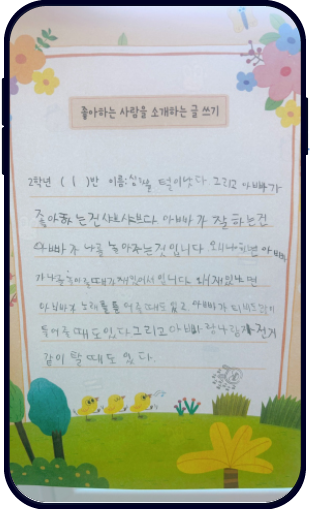 좋아하는 사람을 소개하는 글 쓰기
2학년 ( 1 )반 이름: 털이낫다 그리고 아빠가
좋아하는건 샤브샤브다 아빠가 잘하는건
아빠가 나를 놀아주는것입니다 왜냐하면 아빠
가 나를 놀아줄때가 재밌어서 입니다 왜 재밌냐면
아빠가 노래를 틀어줄때도 있고 아빠가
들어줄때도 있다 그리고 아빠랑 나랑 자전거
같이 탈때도 있다.